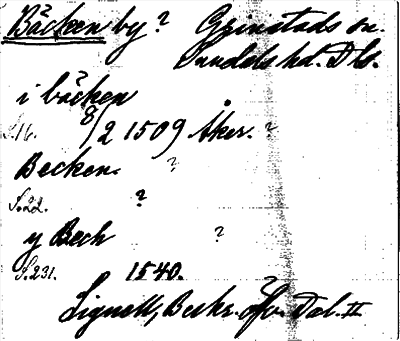 Bäcken by ? Grinstads sn.
Sundals hd. Dls.
i bäcken
S. 16. 8/2 1509 Åker. ?
Becken. ?
S. 22. ?
y Bech ?
S. 231. 1540.
Lignell, Beskr. öfv. Dal. II